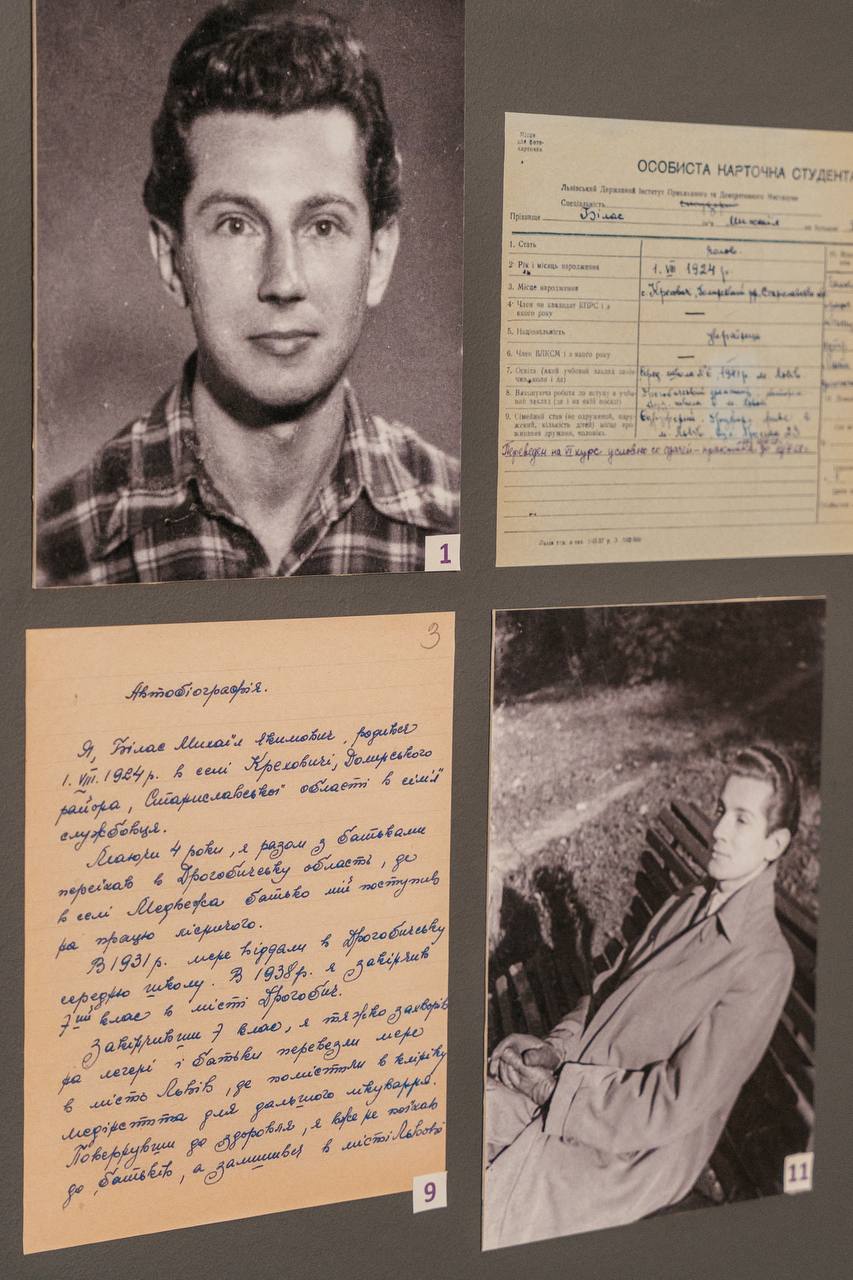 1
Місце
для фото-
карточки
ОСОБИСТА КАРТОЧКА СТУДЕНТА
Львівський Державний Інститут Прикладного та Декоративного Мистецтва
Спеціальність
Прізвище Білас Михайл
1. Стать чолов.
2. Рік і місяць народження 1. VIII 1924 р.
3. Місце народження с. Креховичі,
4. Член чи кандидат КПРС і з —
якого року
5. Національність українець
6. Член ВЛКСМ і з якого року —
7. Освіта (який учбовий заклад
8. до вступу в учбо-
вий заклад (де і на якій посаді)
9. Сімейний стан (не одружений, одру-
жений, кількість дітей) місце про-
живання дружини, чоловіка.
Переведен на VI курс условно со сдачей практики до
3
Автобіографія.
Я, Білас Михайл Якимович, родився
1. VIII. 1924 р. в селі Креховичі, Долинського
району, Станиславської області в сім'ї
службовця.
Маючи 4 роки, я разом з батьками
переїхав в Дрогобичську область, де
в селі Медвежа батько мій поступив
на працю лісничого.
В 1931 р. мене віддали в Дрогобичську
середню школу. В 1938 р. я закінчив
7ий клас в місті Дрогобич.
Закінчивши 7 клас, я тяжко захворів
на легені і батьки перевезли мене
в місто Львів, де помістили в клініку
медінститута для дальшого лікування.
Повернувши до здоровля, я вже не поїхав
до батьків, а залишився в місті Львові
9
11